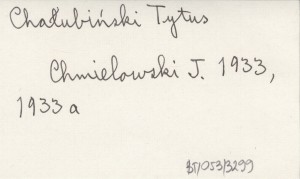 Chałubiński Tytus
Chmielowski J. 1933,
1933 a
BT/053/3299